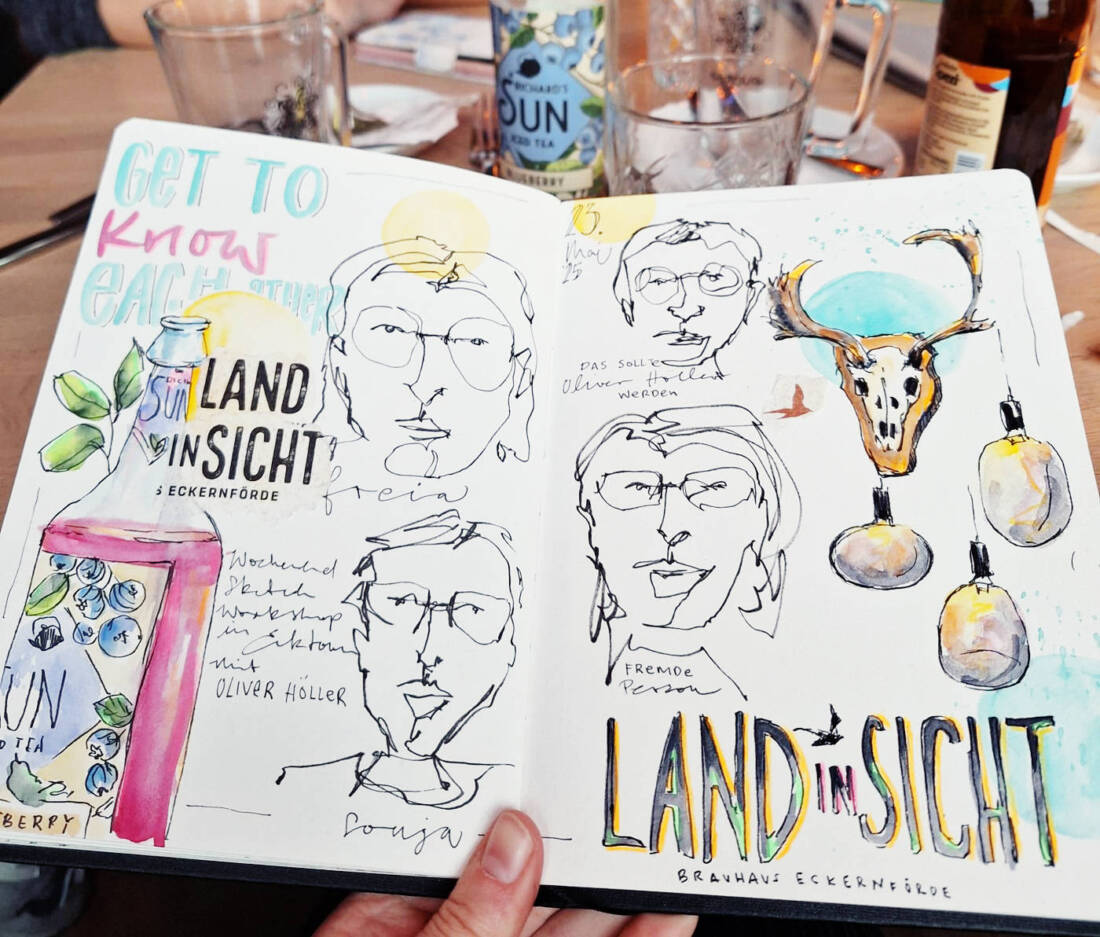 RICHARD'S
SUN
ICED TEA
BLUEBERRY
GET TO
KNOW
EACH OTHER
SUN
LAND
IN SICHT
S ECKERNFÖRDE
freia
Wochenend
Sketch
Workshop
in
mit
OLIVER HÖLLER
SUN
D TEA
BERRY
Sonja
23.
Mai
25
DAS SOLLTE
Oliver Höller
WERDEN
FREMDE
Person
LAND IN SICHT
BRAUHAUS ECKERNFÖRDE